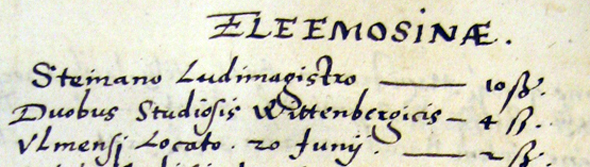 ELEEMOSINÆ.
Steinano Ludimagistro — 10 ß.
Duobus Studiosis Wittenbergicis — 4 ß.
Vlmensj Locato. 20 Junij. — 2 ß.